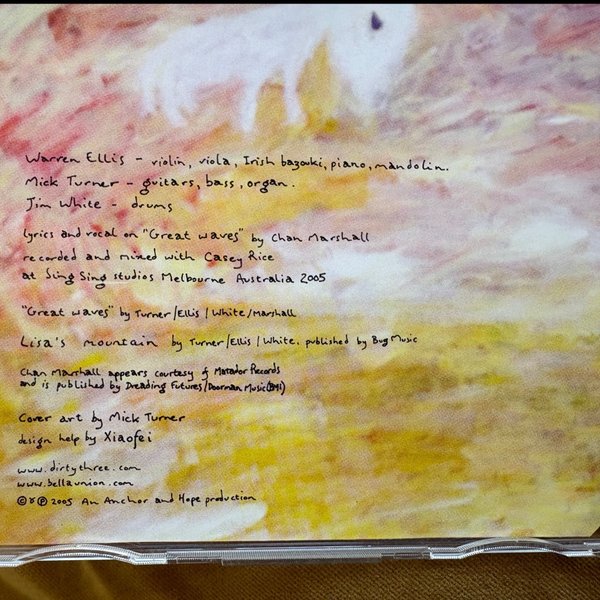 Warren Ellis - violin, viola, Irish bazouki, piano, mandolin.
Mick Turner - guitars, bass, organ.
Jim White - drums
lyrics and vocal on "Great waves" by Chan Marshall
recorded and mixed with Casey Rice
at Sing Sing studios Melbourne Australia 2005
"Great waves" by Turner/Ellis/White/Marshall
Lisa's mountain by Turner/Ellis/White. published by Bug Music
Chan Marshall appears courtesy of Matador Records
and is published by Dreading Futures/Doorman Music (BMI)
Cover art by Mick Turner
design help by Xiaofei
www.dirtythree.com
www.bellaunion.com
© & ℗ 2005 An Anchor and Hope production